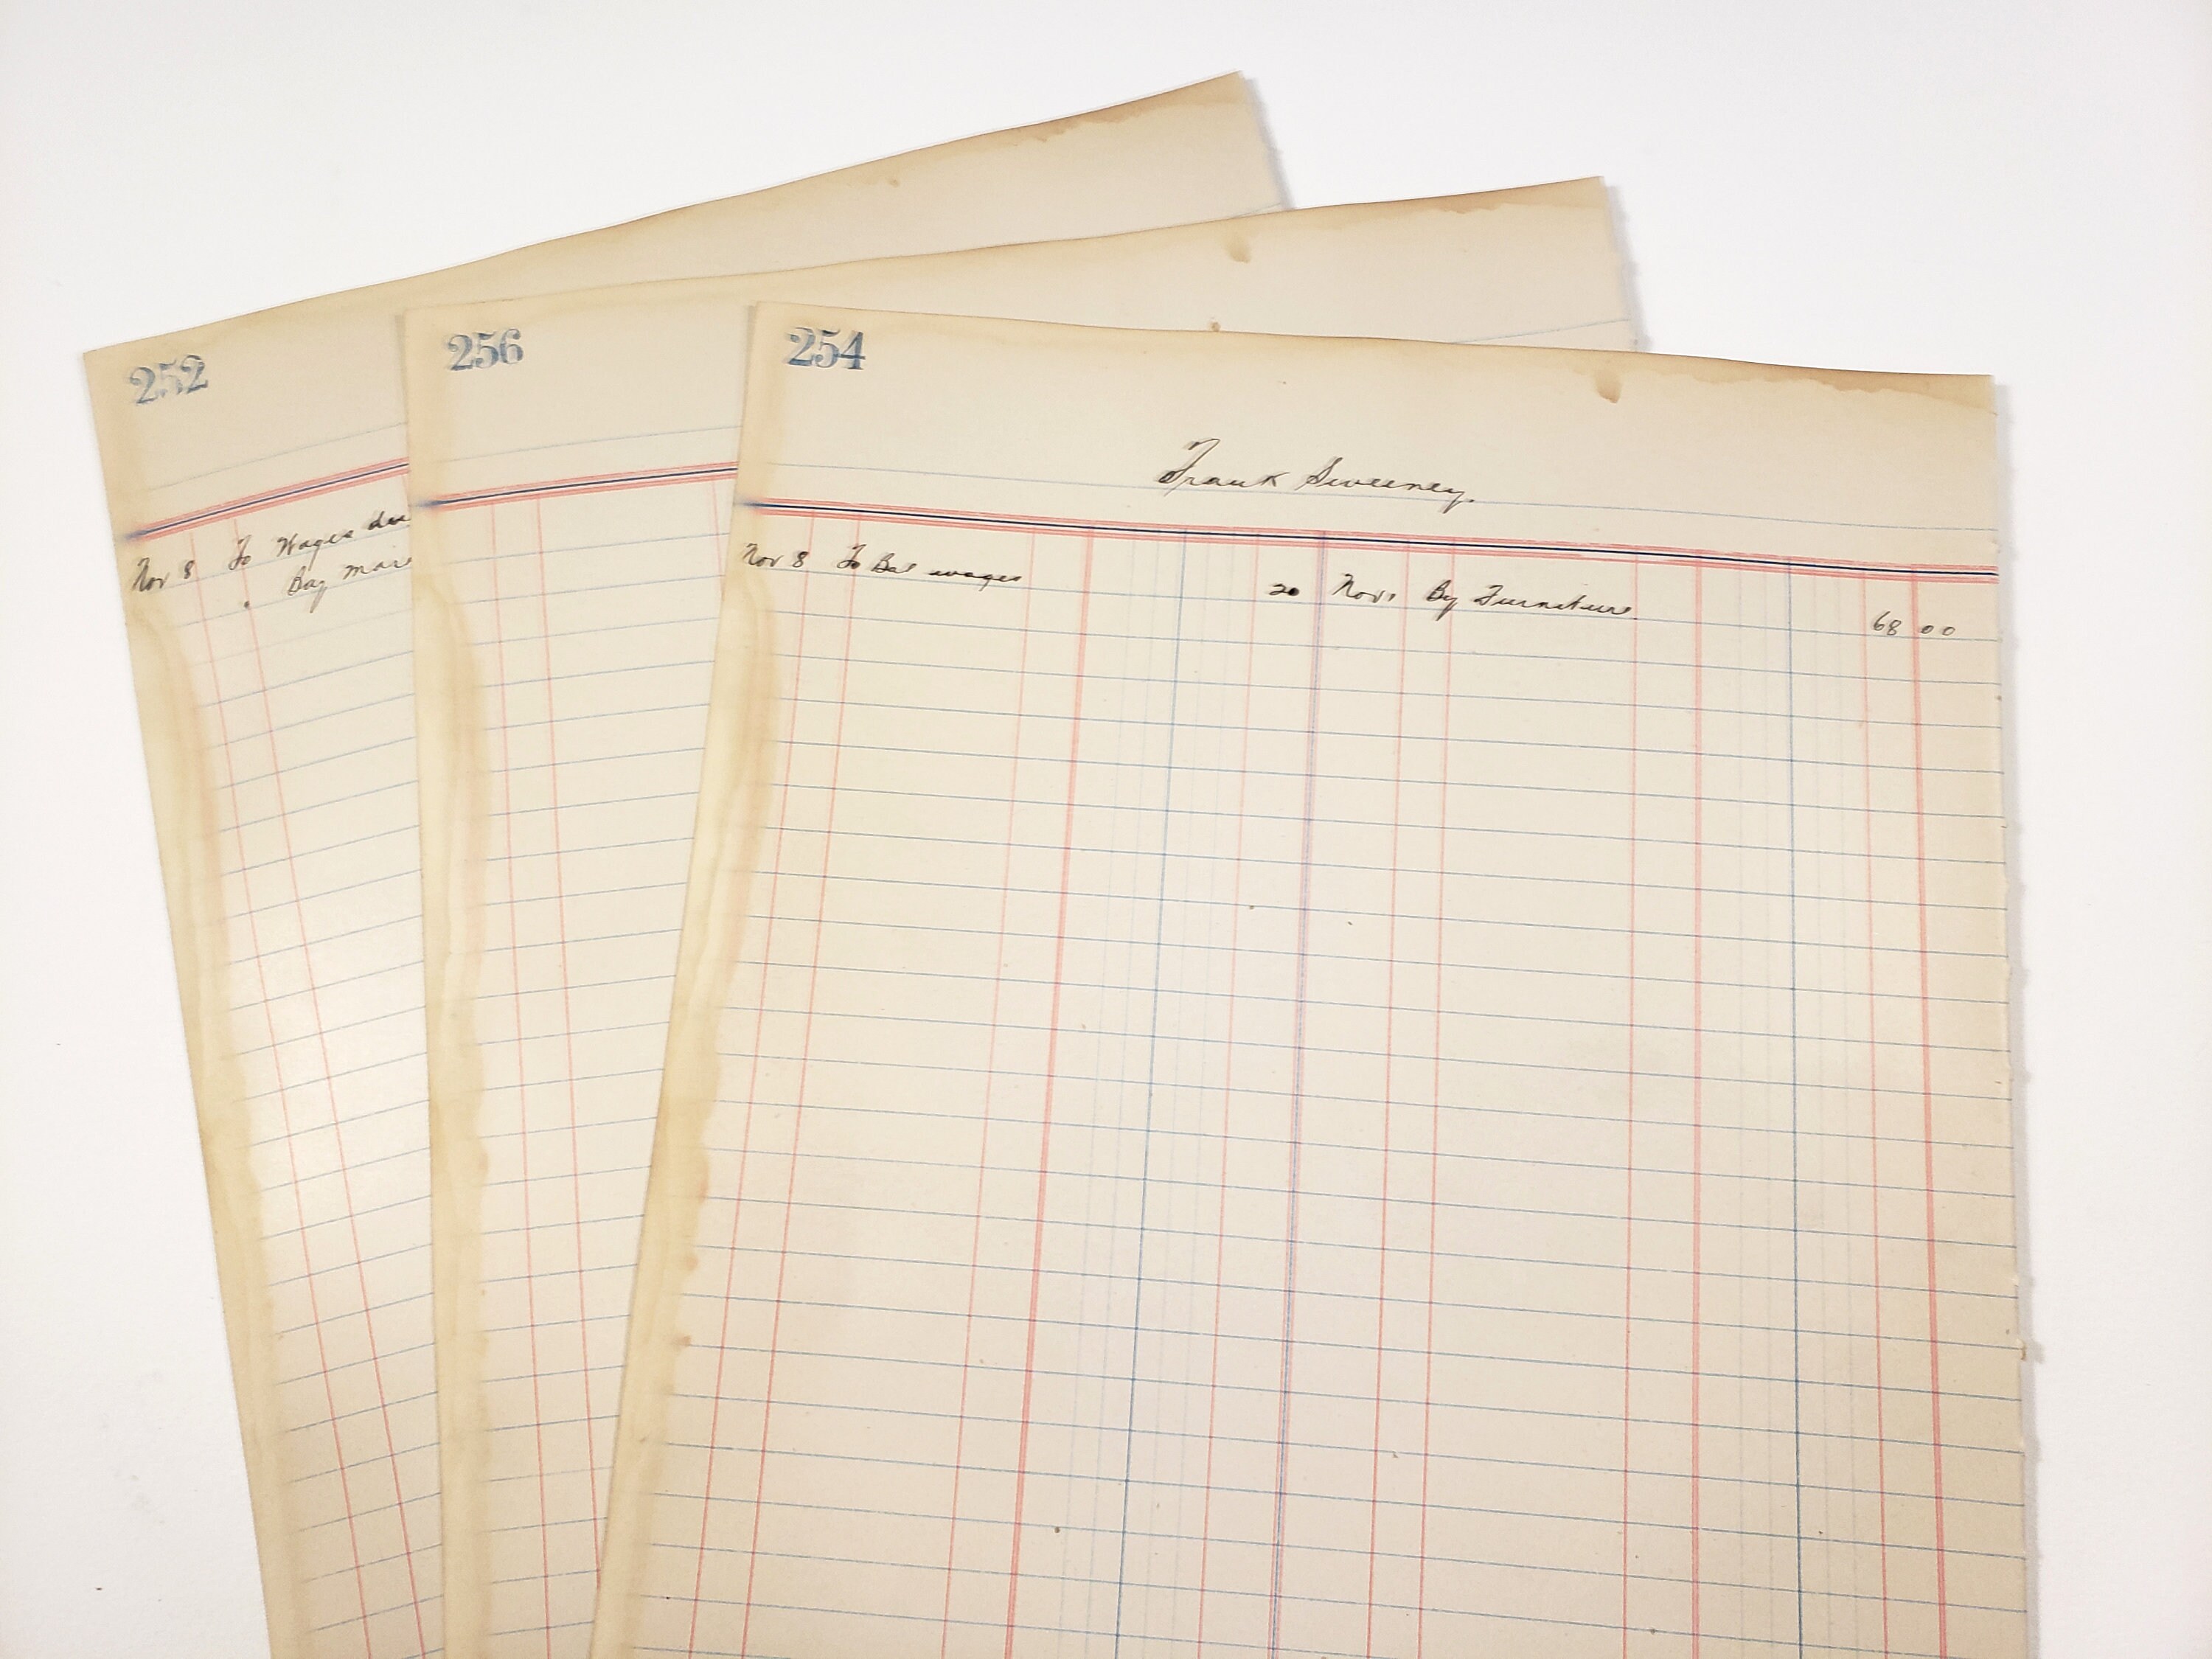 252
Nov 8 To Wages due
Bay mare
256
254
Frank Sweeney.
Nov 8 To Bal wages 20 Nov 1 By Furniture
68 00